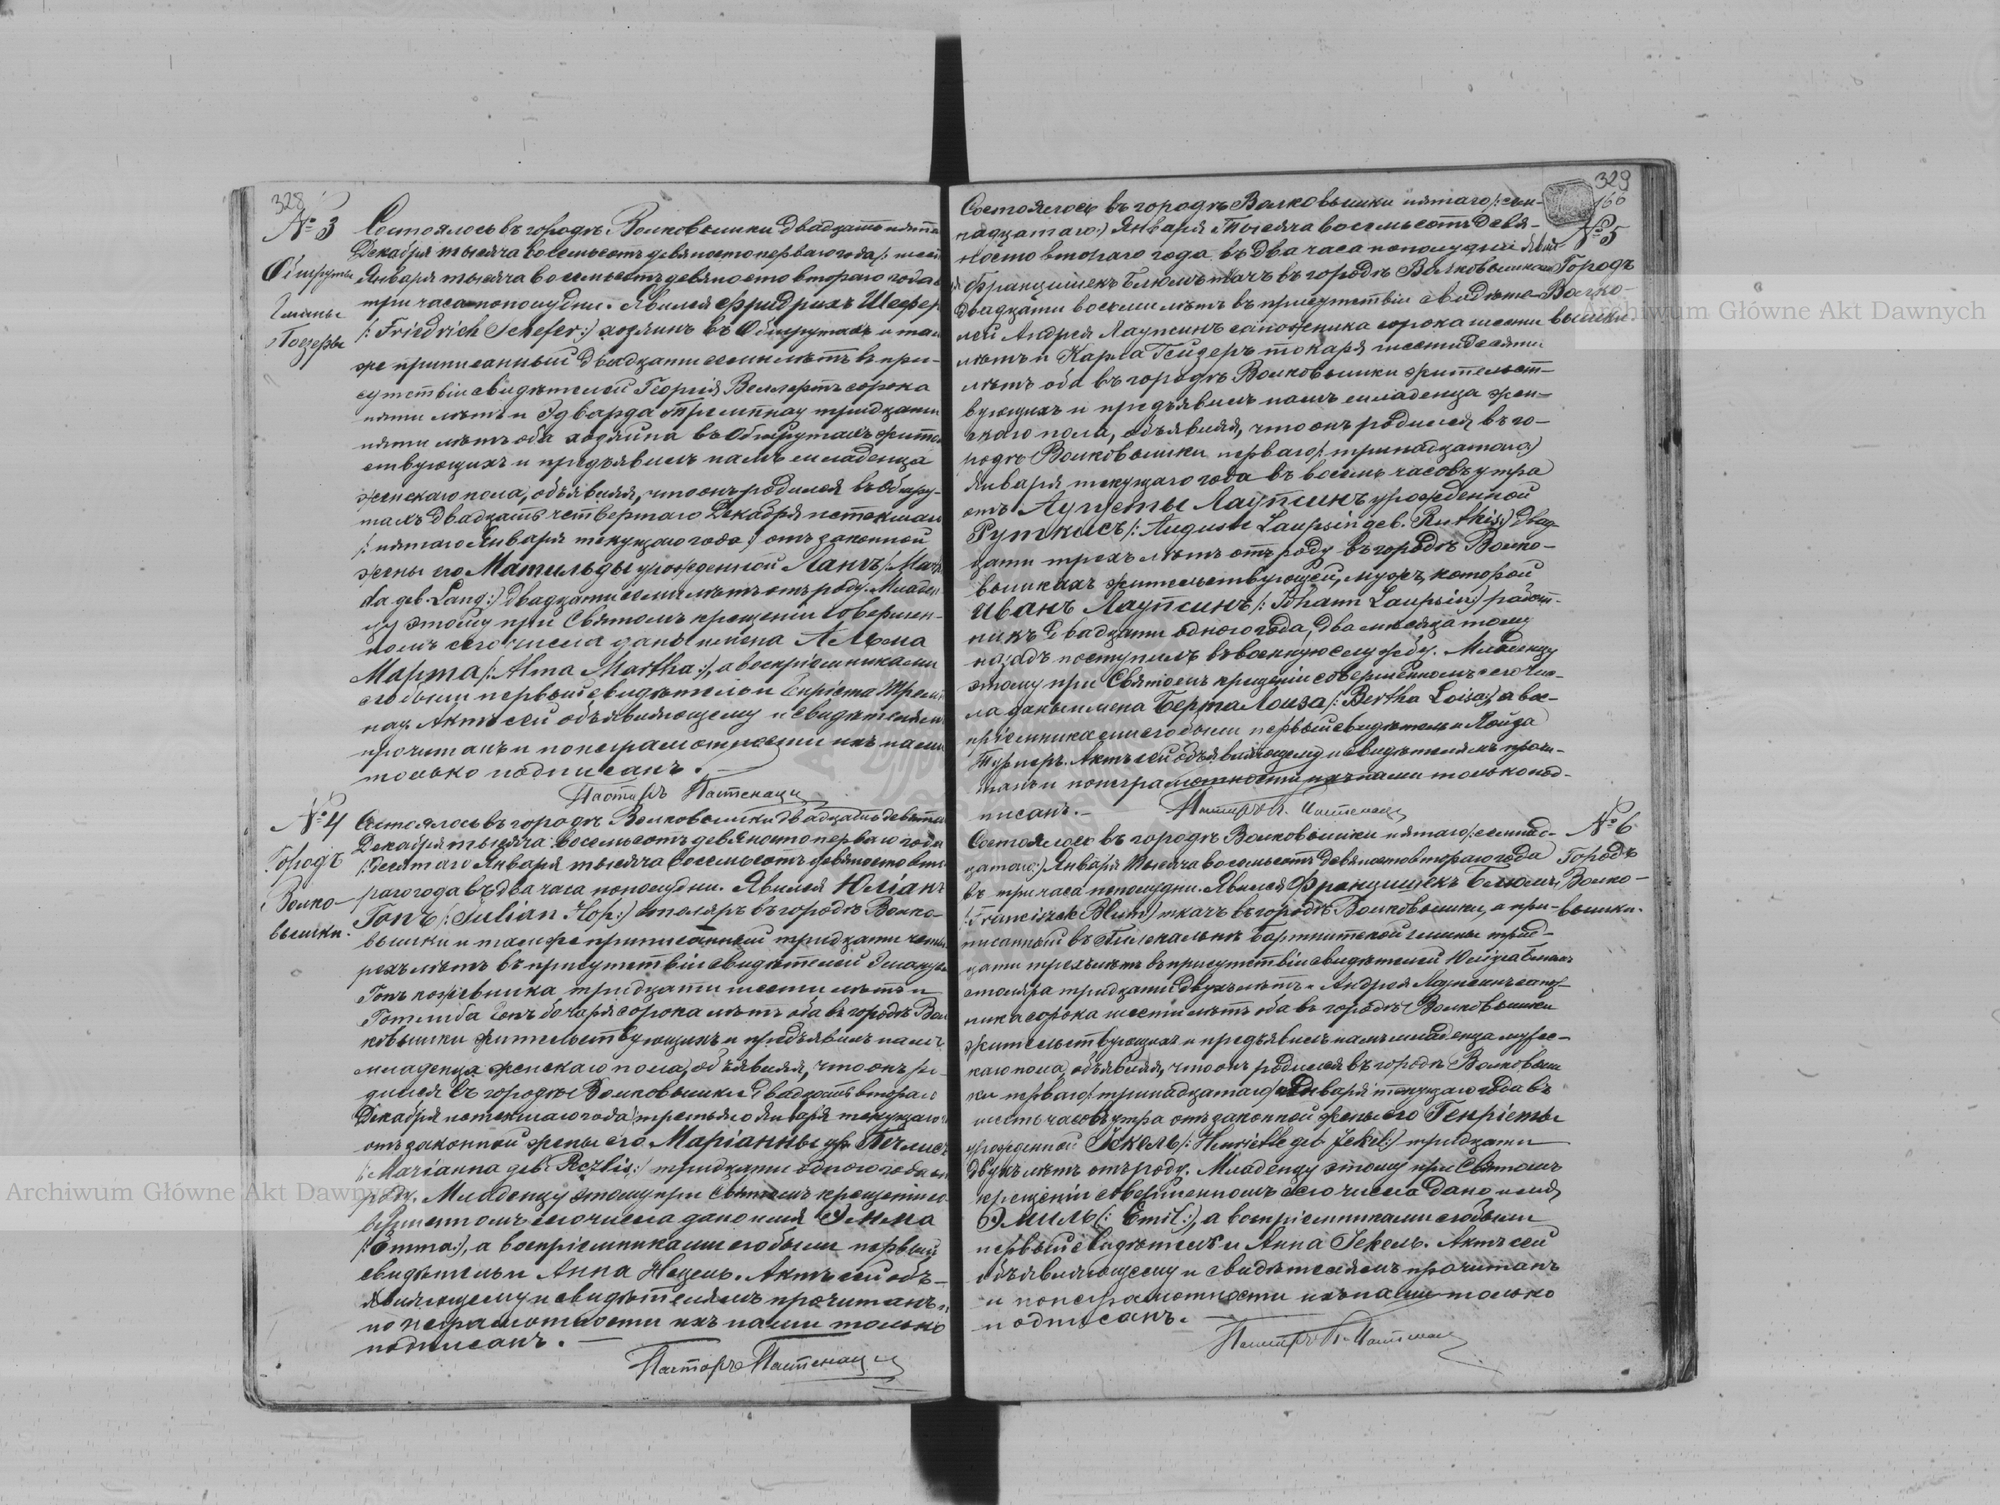 328
№ 3
Обшруты
Гмины
Позерви
Состоялось въ городѣ Волковышки двадцать пята
Декабря тысяча восемьсотъ девяносто перваго года /: шест
Января тысяча восемьсотъ девяносто втораго года
три часа пополудни. Явился Фридрихъ Шефер
/: Friedrich Schefer:/ хозяинъ въ Обшрутахъ и там
же приписанный двадцати семи лѣтъ въ при-
сутствіи свидѣтелей Георгія Веллертъ сорока
пяти лѣтъ и Эдварда Тремпнау тридцати
пяти лѣтъ оба хозяина въ Обшрутахъ жител
ствующихъ и предъявилъ намъ младенца
женскаго пола, объявляя, что онъ родился въ Обшру-
тахъ двадцать четвертаго Декабря истекшаго
/: пятаго Января текущаго года:/ отъ законной
жены его Матильды урожденной Лангъ /: Matil
da geb. Lang:/ двадцати семи лѣтъ отъ роду. Младен
цу этому при Святомъ крещеніи совершен-
номъ сего числа даны имена Альма
Марта /: Alma Martha:/, а воспріемниками
его были первый свидѣтель и Генріета Тремп
нау. Актъ сей объявляющему и свидѣтелямъ
прочитанъ и по неграмотности ихъ нами
только подписанъ.
Пасторъ Пастенаци
№ 4
Городъ
Волко-
вышки.
Состоялось въ городѣ Волковышки двадцать девята
Декабря тысяча восемьсотъ девяносто перваго года
/: десятаго Января тысяча восемьсотъ девяносто вто
раго года въ два часа пополудни. Явился Юліанъ
Гопъ /: Julian Hop:/ столяръ въ городѣ Волко-
вышки и тамже приписанный тридцати четы
рехъ лѣтъ въ присутствіи свидѣтелей Эмануила
Гопъ кожевника тридцати шести лѣтъ и
Готлиба Гопъ бочаря сорока лѣтъ оба въ городѣ Вол
ковышки жительствующихъ и предъявилъ намъ
младенца женскаго пола, объявляя, что онъ ро-
дился въ городѣ Волковышки двадцать втораго
Декабря истекшаго года /: третьяго Января текущаго
отъ законной жены его Маріанны ур. Печлисъ
/: Marianna geb. Peczlis:/ тридцати одного года отъ
роду. Младенцу этому при Святомъ крещеніи со
вершенномъ сего числа дано имя Эмма
/: Emma:/, а воспріемниками его были первый
свидѣтель и Анна Нецель. Актъ сей объ-
являющему и свидѣтелямъ прочитанъ и
по неграмотности ихъ нами только
подписанъ.
Пасторъ Пастенаци
329
160
№ 5
Городъ
Волко-
вышки.
Состоялось въ городѣ Волковышки пятаго /: сем-
надцатаго:/ Января Тысяча восемьсотъ девя-
носто втораго года въ два часа пополудни Явил
ся Францишекъ Блюмъ ткачъ въ городѣ Волковышкахъ
двадцати восьми лѣтъ въ присутствіи свидѣте-
лей Андрея Лаупсинъ сапожника сорока шести
лѣтъ и Карла Гейдеръ токаря шестидесяти
лѣтъ оба въ городѣ Волковышки жительст-
вующихъ и предъявилъ намъ младенца жен-
скаго пола, объявляя, что онъ родился въ го-
родѣ Волковышки перваго /: тринадцатаго:/
Января текущаго года въ восемь часовъ утра
отъ Аугусты Лаупсинъ урожденной
Руткисъ /: Auguste Laupsin geb. Ruthis:/ двад-
цати трехъ лѣтъ отъ роду въ городѣ Волко-
вышкахъ жительствующей, мужъ которой
Иванъ Лаупсинъ /: Johann Laupsin:/ работ-
никъ двадцати одного года, два мѣсяца тому
назадъ поступилъ въ военную службу. Младенцу
этому при Святомъ крещеніи совершенномъ сего чис-
ла даны имена Берта Лоиза /: Bertha Loisa:/ а вос-
пріемниками его были первый свидѣтель и Лоиза
Турнеръ. Актъ сей объявляющему и свидѣтелямъ прочи-
танъ и по неграмотности ихъ нами только под-
писанъ.
Пасторъ П. Пастенаци
№ 6
Городъ
Волко-
вышки.
Состоялось въ городѣ Волковышки пятаго /: семнад-
цатаго:/ Января Тысяча восемьсотъ девяносто втораго года
въ три часа пополудни. Явился Францишекъ Блюмъ
/: Franciszek Blum:/ ткачъ въ городѣ Волковышки, а при-
писанный въ Бартнитской гмины трид-
цати трехъ лѣтъ въ присутствіи свидѣтелей
столяра тридцати двухъ лѣтъ и Андрея Лаупсинъ сапож
ника сорока шести лѣтъ оба въ городѣ Волковышки
жительствующихъ и предъявилъ намъ младенца мужес-
каго пола, объявляя, что онъ родился въ городѣ Волковыш
ки перваго /: тринадцатаго:/ Января текущаго года въ
шесть часовъ утра отъ законной жены его Генріеты
урожденной Іекель /: Henriette geb. Jekel:/ тридцати
двухъ лѣтъ отъ роду. Младенцу этому при Святомъ
крещеніи совершенномъ сего числа дано имя
Эмиль /: Emil:/, а воспріемниками его были
первый свидѣтель и Анна Іекель. Актъ сей
объявляющему и свидѣтелямъ прочитанъ
и по неграмотности ихъ нами только
подписанъ.
Пасторъ П. Пастенаци
Archiwum Główne Akt Dawnych
Archiwum Główne Akt Dawnych